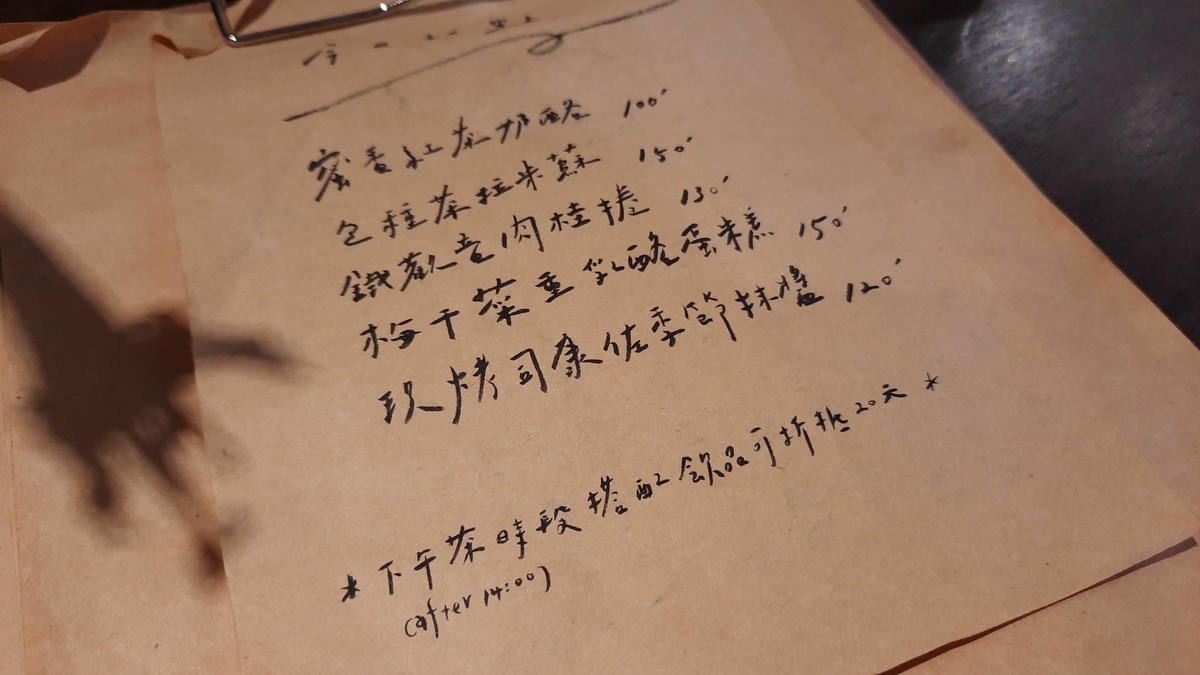 蜜香紅茶奶酪 100'
包種茶拉米蘇 150'
鐵觀音肉桂捲 130'
梅干菜重乳酪蛋糕 150'
現烤司康佐季節抹醬 120'
* 下午茶時段搭配飲品可折抵20元 *
(after 14:00)